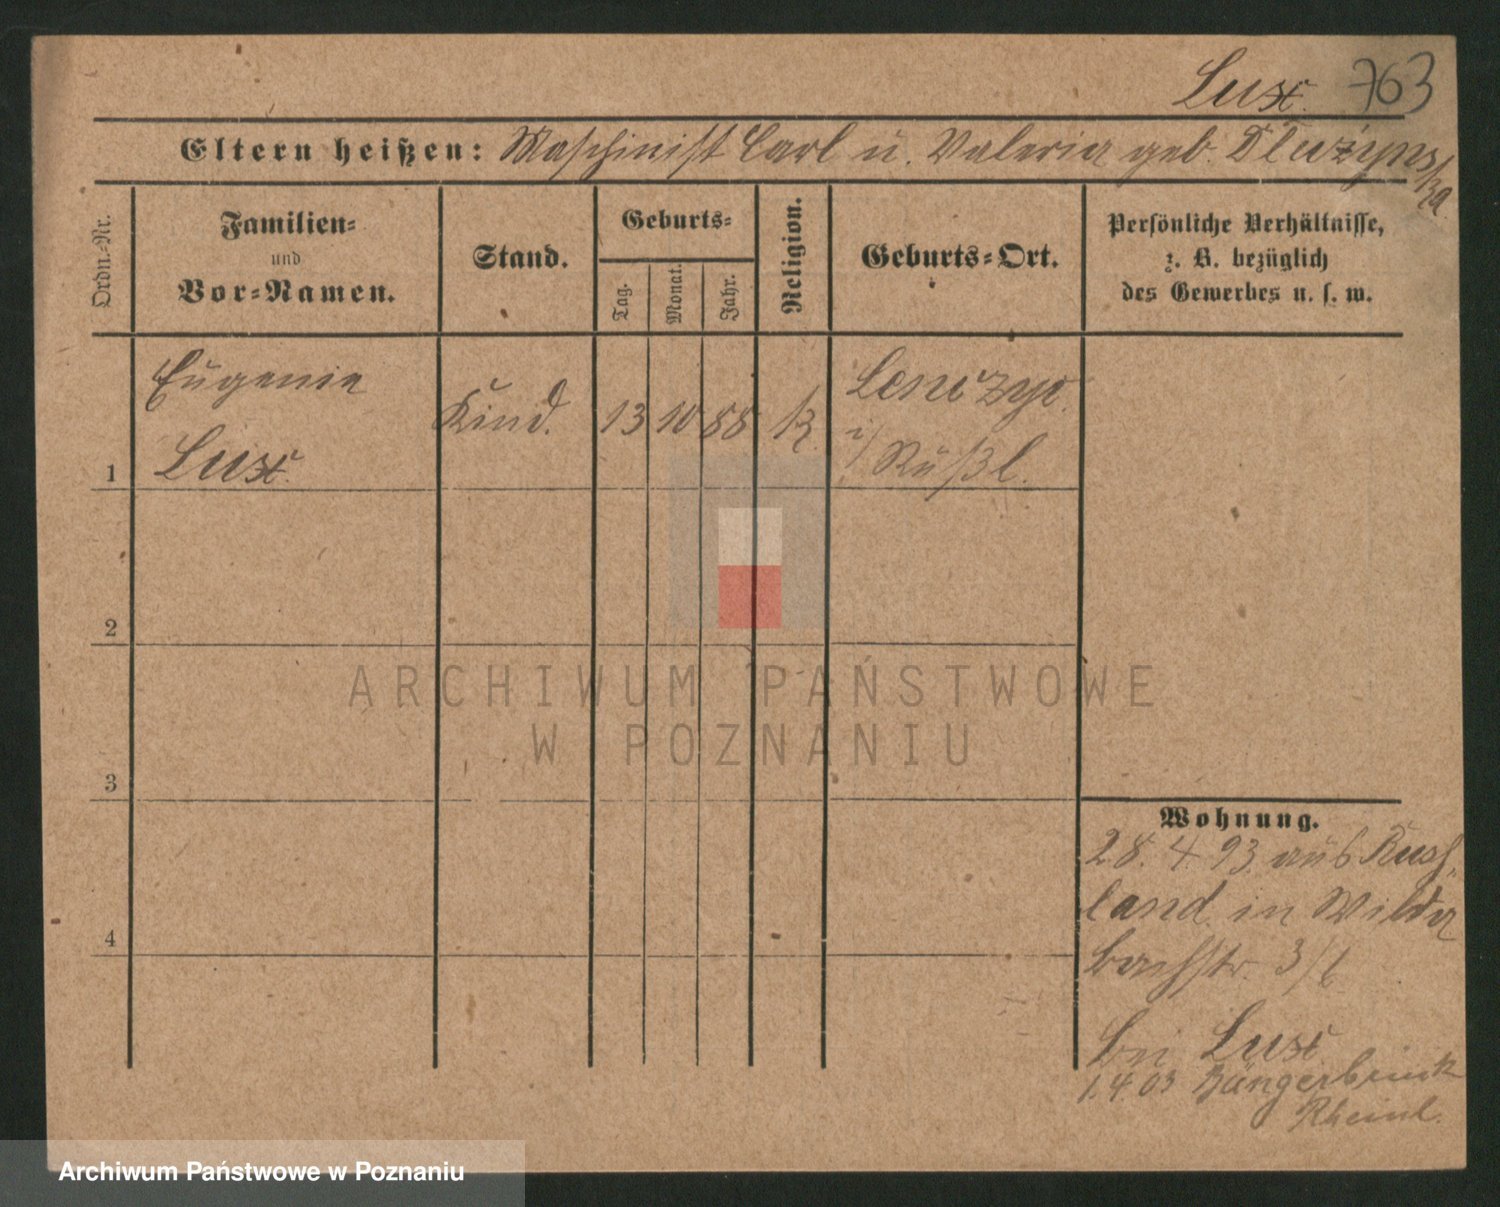 Lux. 763
Eltern heißen: Maschinist Carl u. Valeria geb. Dluzyns
ka
Ordn.-Nr.
Familien-
und
Vor-Namen.
Stand.
Geburts-
Tag.
Monat.
Jahr.
Religion.
Geburts-Ort.
Persönliche Verhältnisse,
z. B. bezüglich
des Gewerbes u. s. w.
1
Eugenie
Lux.
Kind.
13
10
88
k.
Lenczyc.
i/Rußl.
2
3
4
Wohnung.
28. 4. 93. aus Russ-
land in Wilda
Bachstr. 3/
bei Lux
1.4 03
Rheinl.
ARCHIWUM PAŃSTWOWE
W POZNANIU
Archiwum Państwowe w Poznaniu